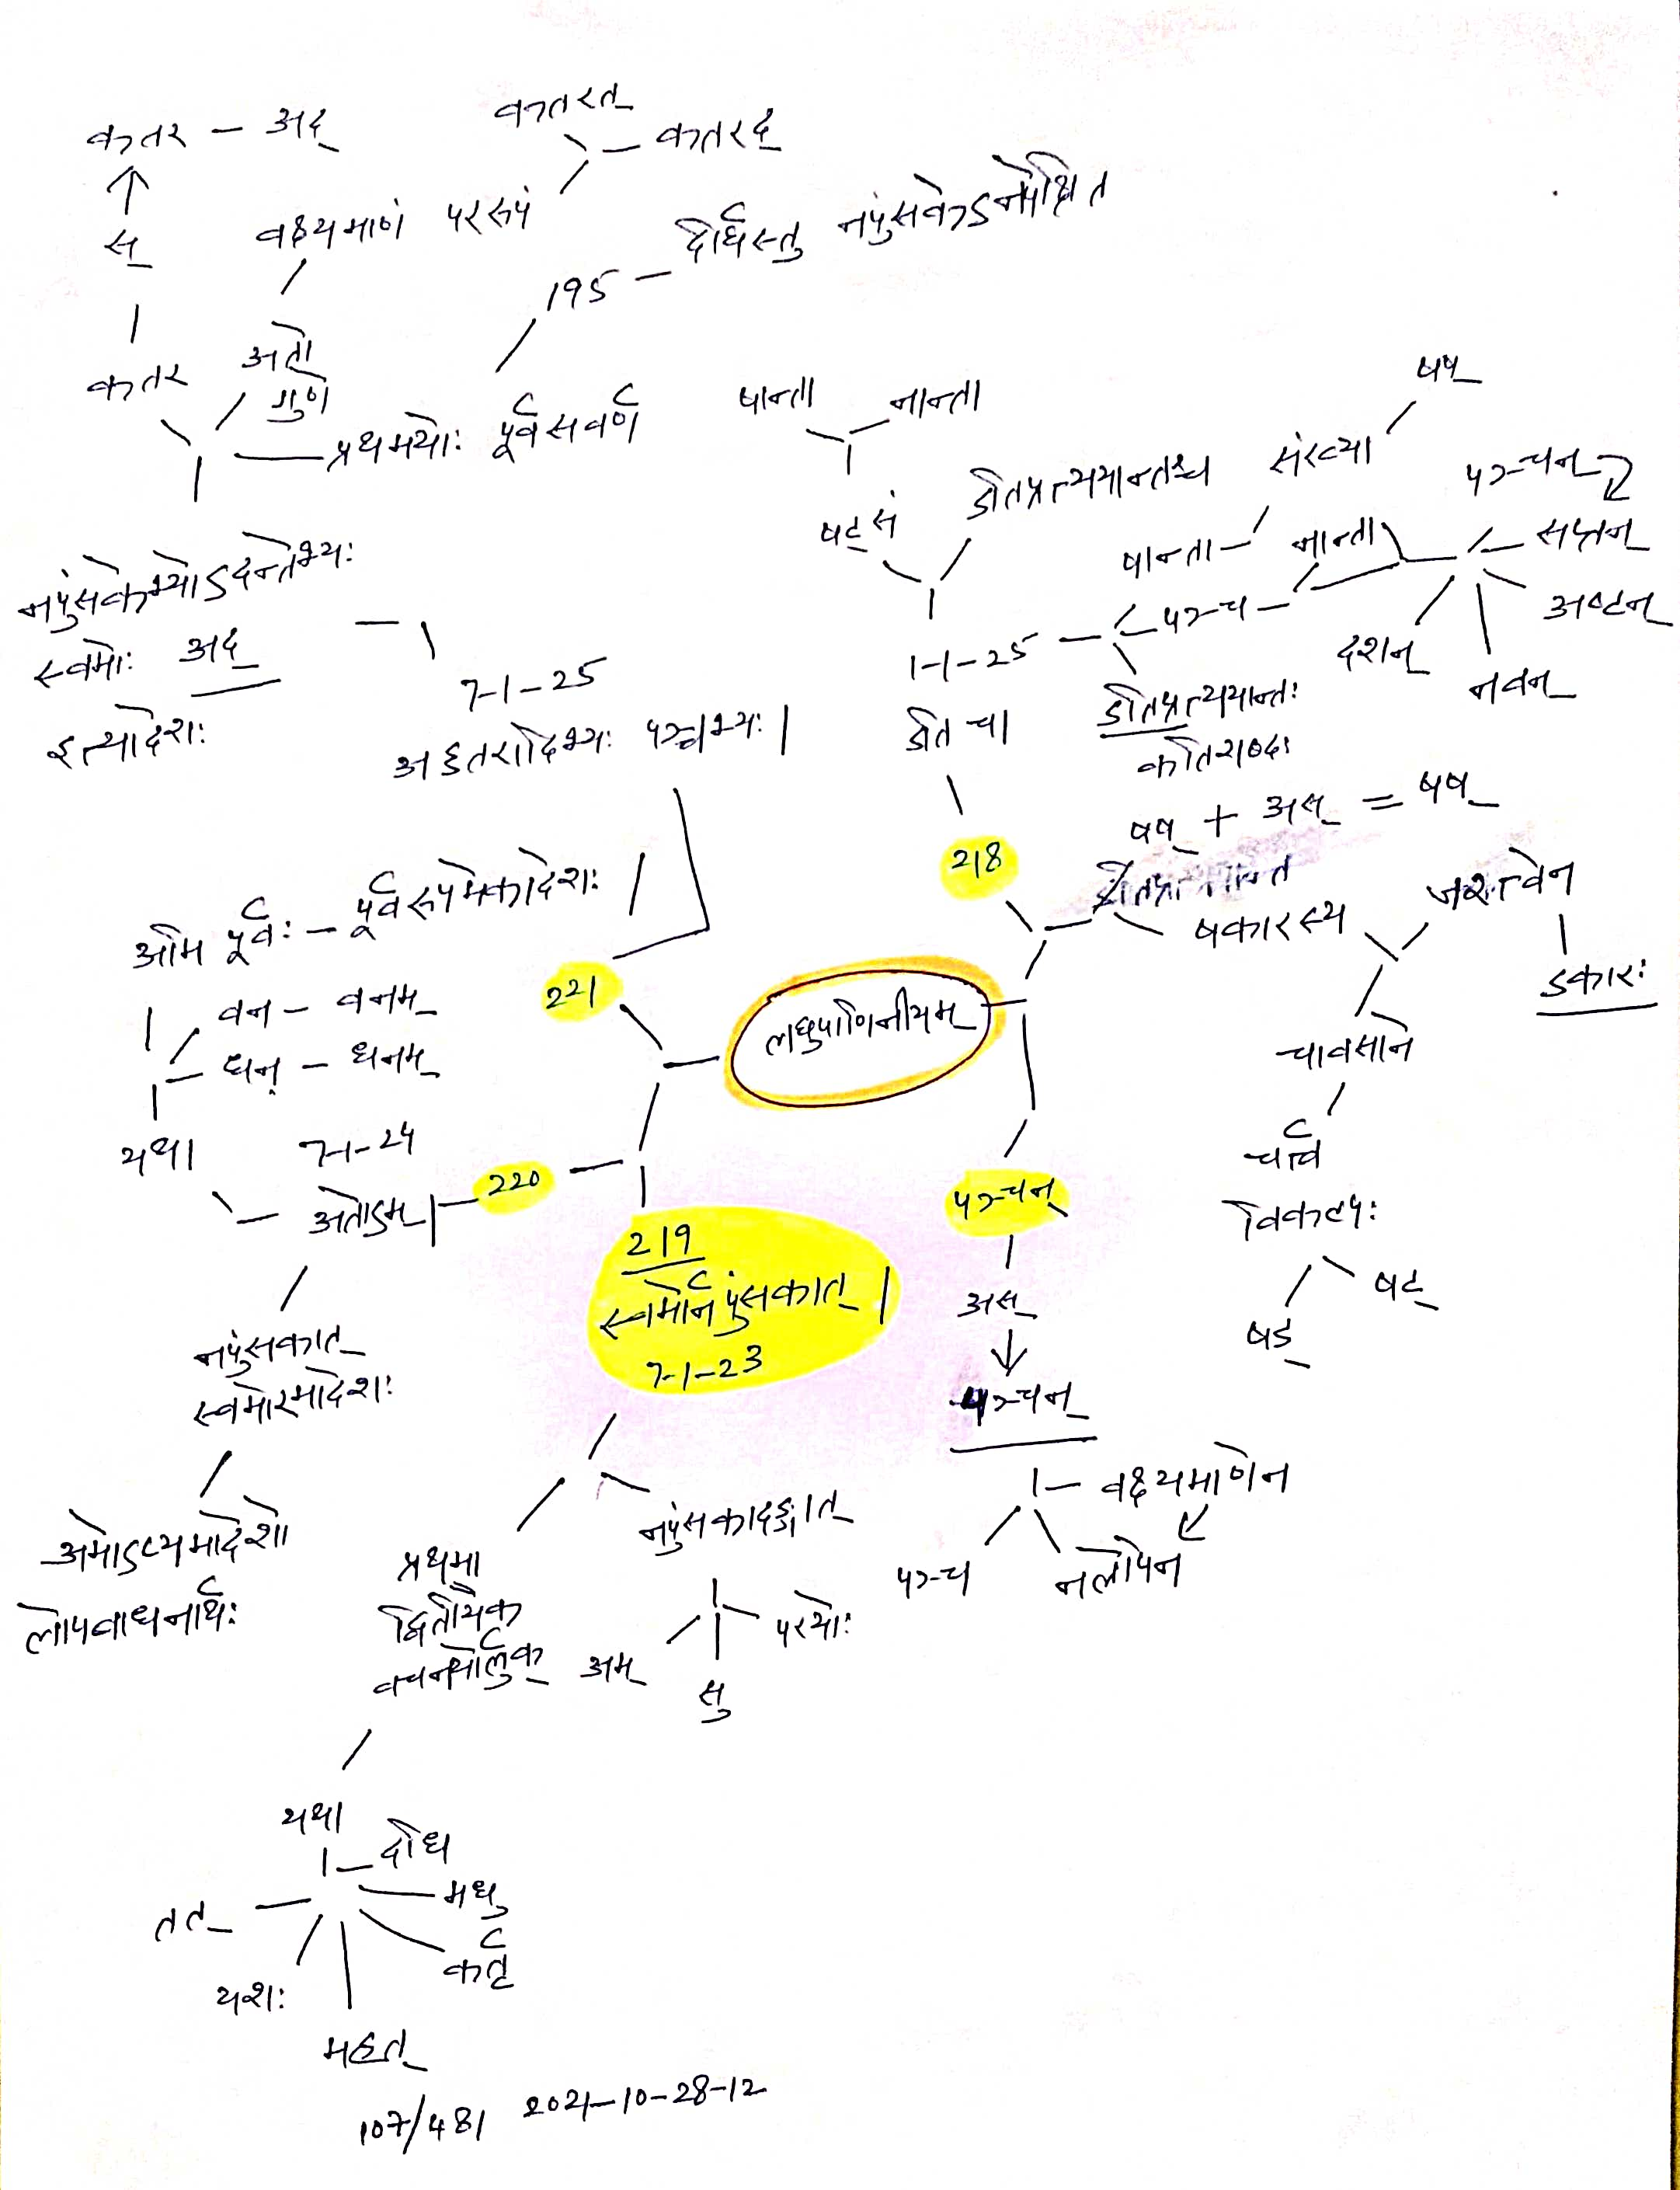 कतर - अद्
स्
कतर
कतरत्
कतरद्
वक्ष्यमाणं पररूपं
अतो
गुणे
195 - दीर्घस्तु नपुंसकेऽनपेक्षित
प्रथमयोः पूर्वसवर्ण
नपुंसकेभ्योऽदन्तेभ्यः
स्वमोः अद्
इत्यादेशः
7-1-25
अड्डतरादिभ्यः पञ्चभ्यः।
षान्ता
नान्ता
षट् सं
डतिप्रत्ययान्तश्च
1-1-25
डति च।
218
षष्
संख्या
षान्ता
नान्ता
पञ्च
पञ्चन्
सप्तन्
अष्टन्
नवन्
दशन्
डतिप्रत्ययान्तः
कतिशब्दः
षष् + अस् = षष्
षकारस्य
जश्त्वेन
डकारः
चावसाने
चर्त्व
विकल्पः
षड्
षट्
लघुपाणिनीयम्
221
अमि पूर्वः - पूर्वरूपमेकादेशः
वन - वनम्
धन् - धनम्
यथा
7-1-24
अतोऽम्।
220
नपुंसकात्
स्वमोरमादेशः
अमोऽप्यमादेशो
लोपबाधनार्थः
219
स्वमोर्नपुंसकात्।
7-1-23
प्रथमा
द्वितीयैक
वचनयोर्लुक्
नपुंसकादङ्गात्
अम्
सु
परयोः
यथा
दधि
मधु
कर्तृ
महत्
यशः
तत्
पञ्चन्
अस्
पञ्चन्
वक्ष्यमाणेन
नलोपेन
पञ्च
107/481 2021-10-28-12